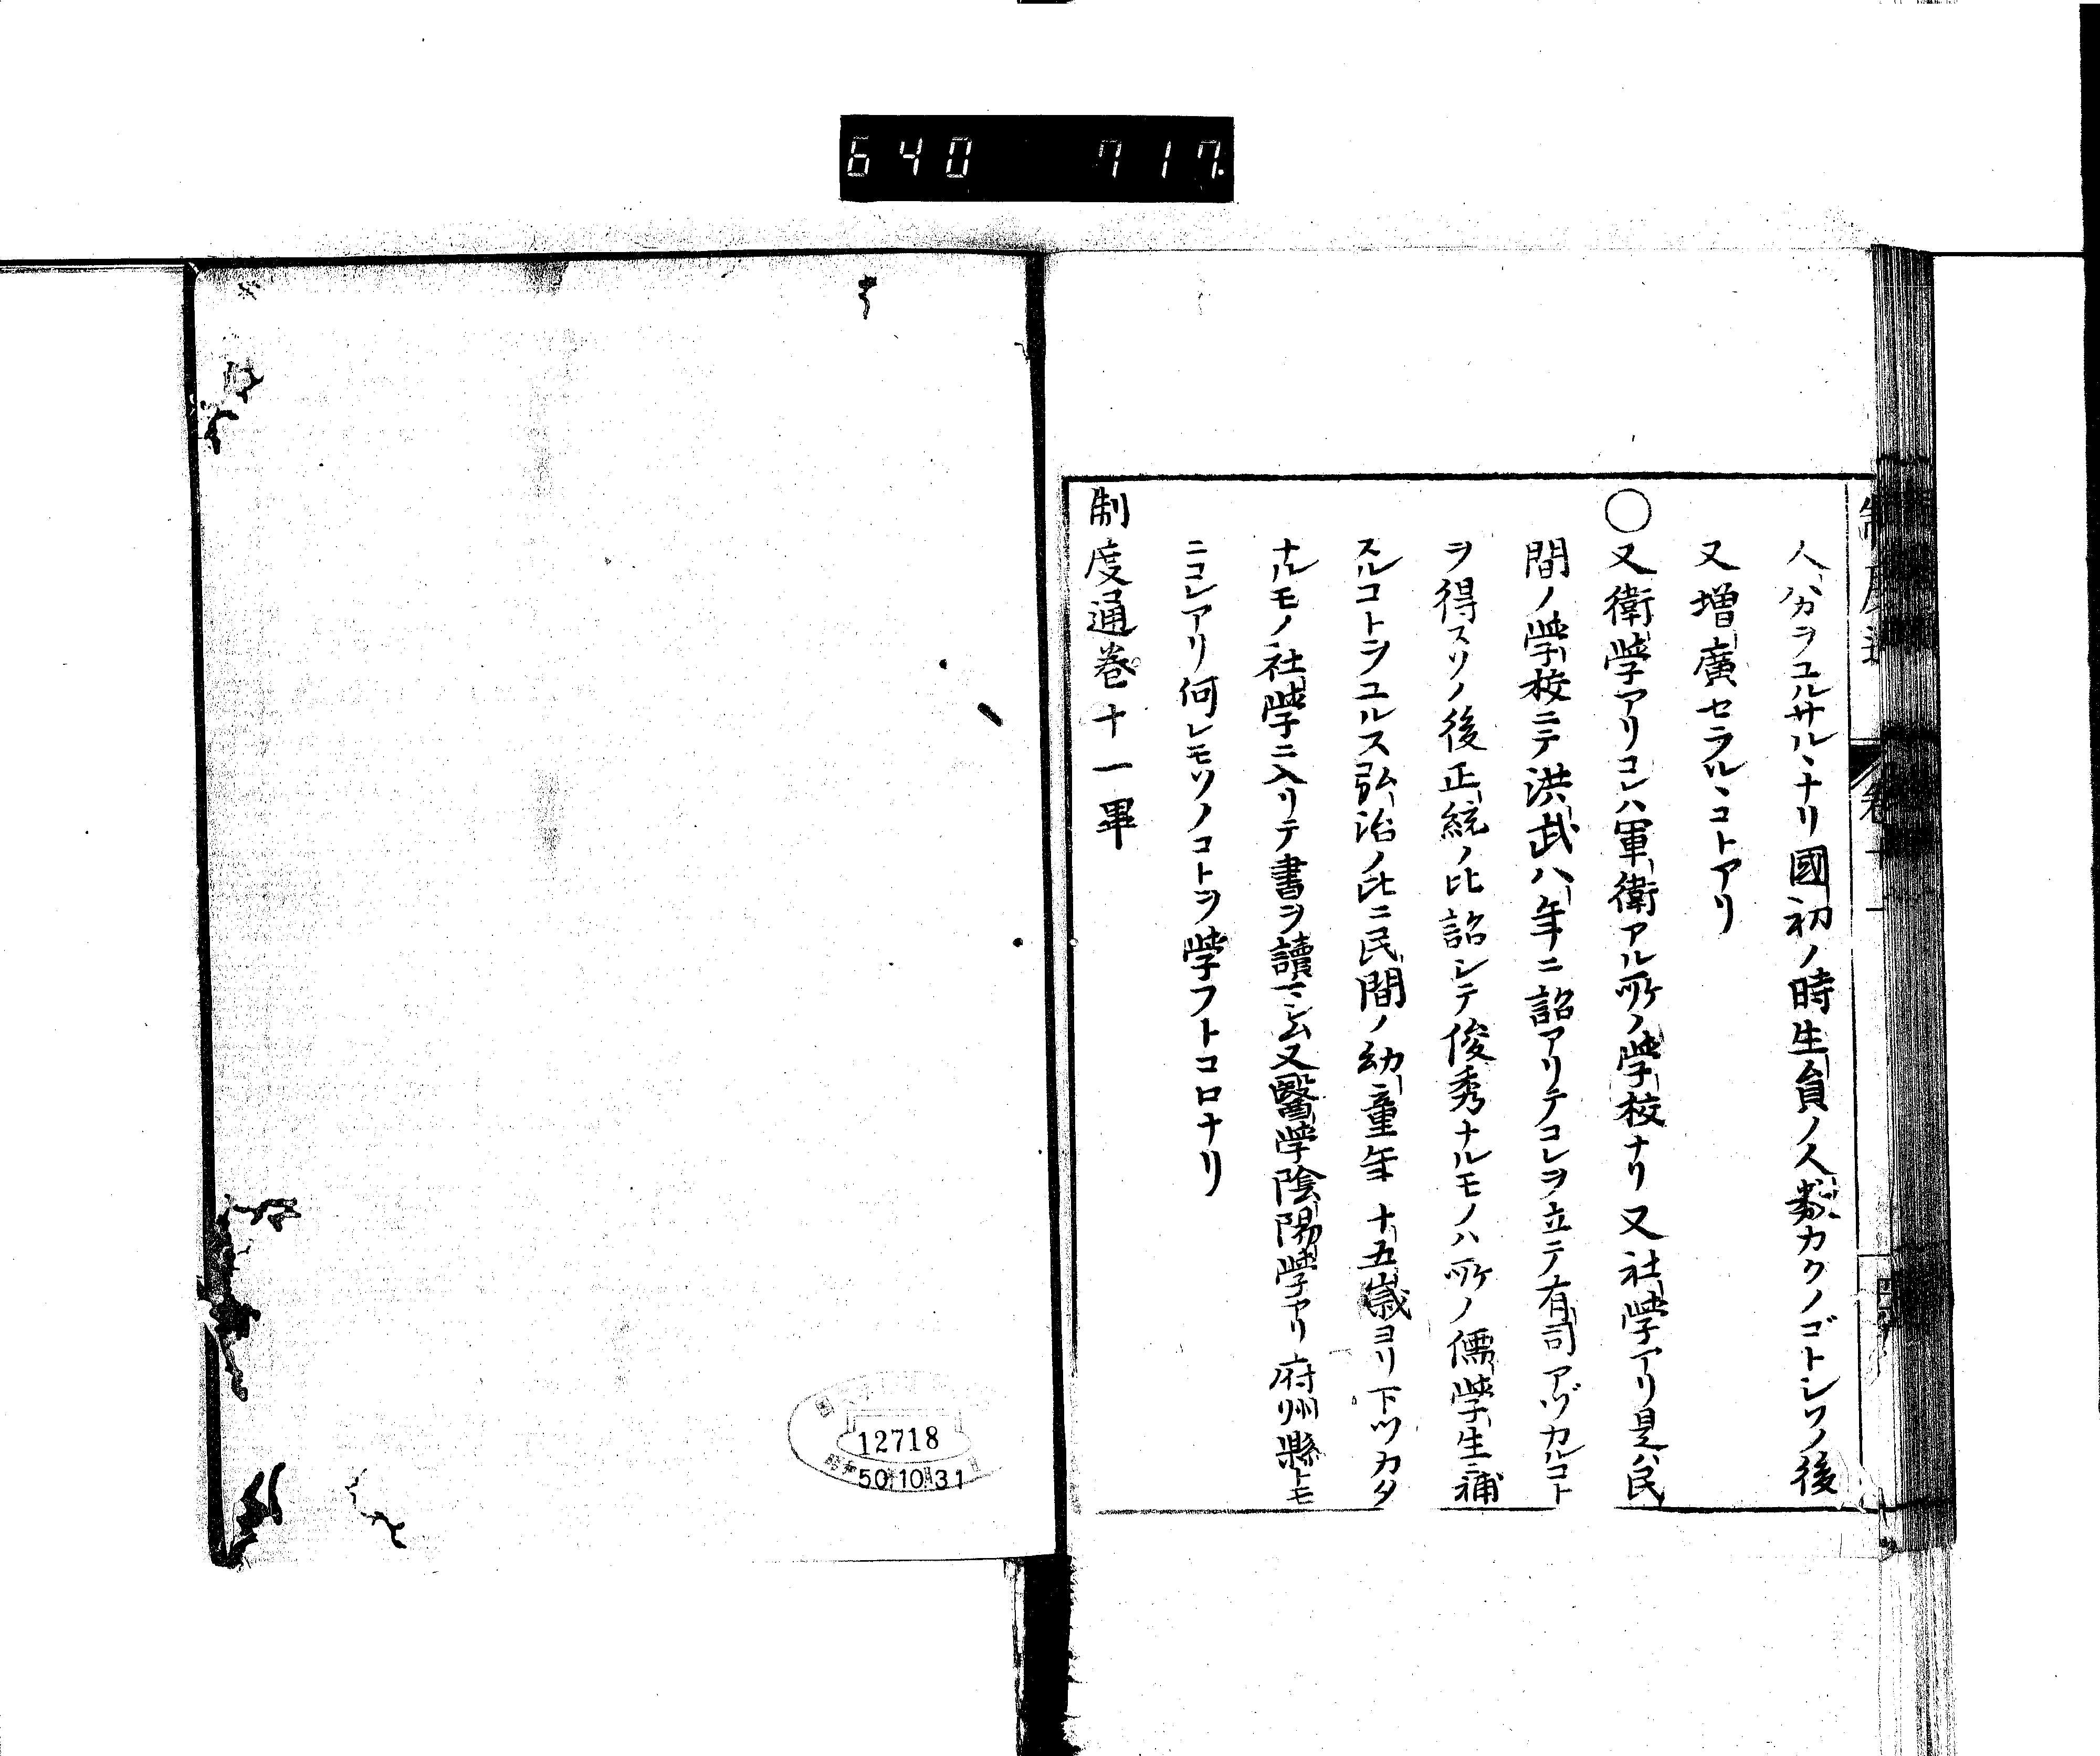 640 717.
人ハカラユルサルヽナリ國初ノ時生員ノ人数カクノゴトシソノ後
又増廣セラルヽコトアリ
○又衛学アリコレハ軍衛アル所ノ学校ナリ又社学アリ是ハ民
間ノ学校ニテ洪武八年ニ詔アリテコレヲ立テ有司アヅカルコト
ヲ得スソノ後正統ノ比詔シテ俊秀ナルモノハ所ノ儒学生ニ補
スルコトヲユルス弘治ノ比ニ民間ノ幼童年十五歳ヨリ下ツカタ
ナルモノ社学ニ入リテ書ヲ讀マシム又醫学陰陽学アリ府州縣トモ
ニコレアリ何レモソノコトヲ学フトコロナリ
制度通巻十一畢
12718
50.10.31